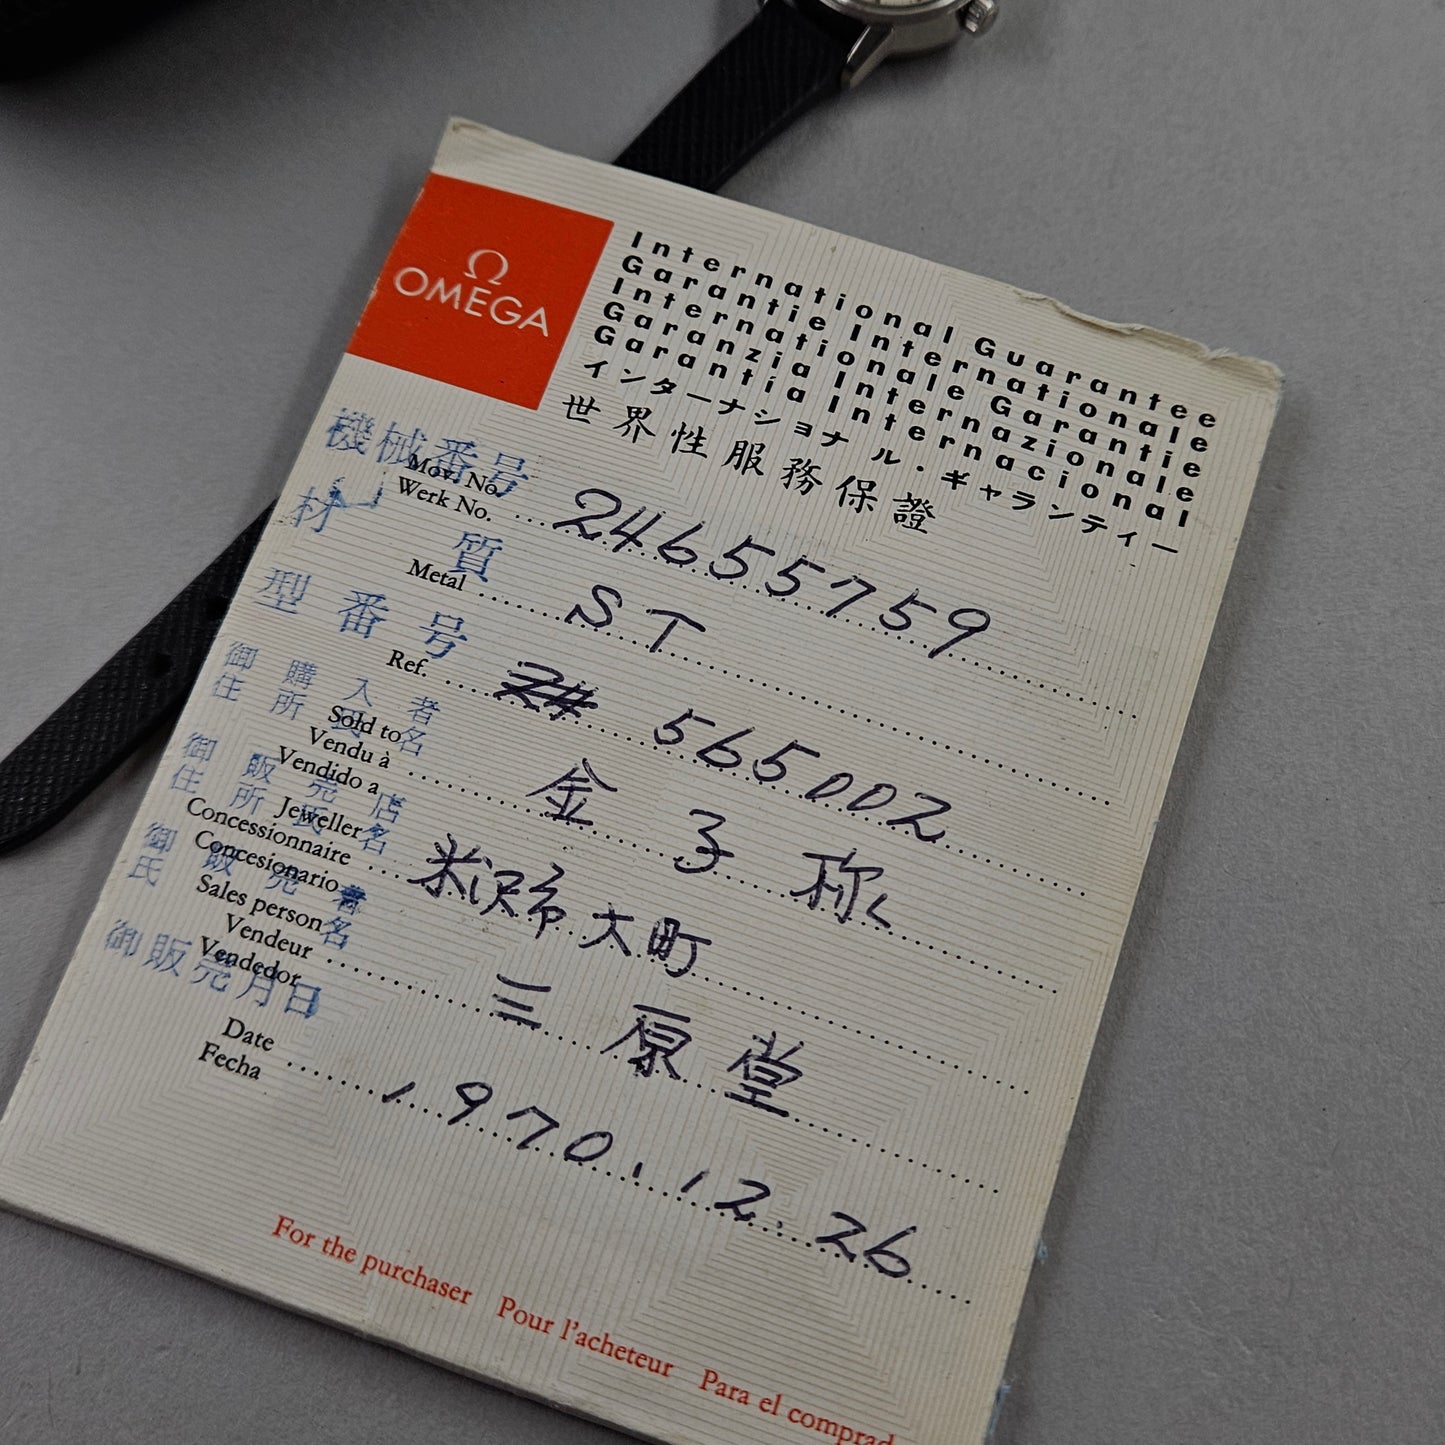 Ω
OMEGA
International Guarantee
Garantie Internationale
Internationale Garantie
Garanzia Internazionale
Garantía Internacional
インターナショナル・ギャランティー
世界性服務保證
機械番号
Mov. No.
Werk No.
24655759
材質
Metal
ST
型番号
Ref.
565002
御購入者
住所氏名
Sold to
Vendu à
Vendido a
金子 称
御販売店
住所氏名
Jeweller
Concessionnaire
Concesionario
米沢市大町
御販売者
氏名
Sales person
Vendeur
Vendedor
三原堂
御販売月日
Date
Fecha
1970.12.26
For the purchaser Pour l'acheteur Para el comprad